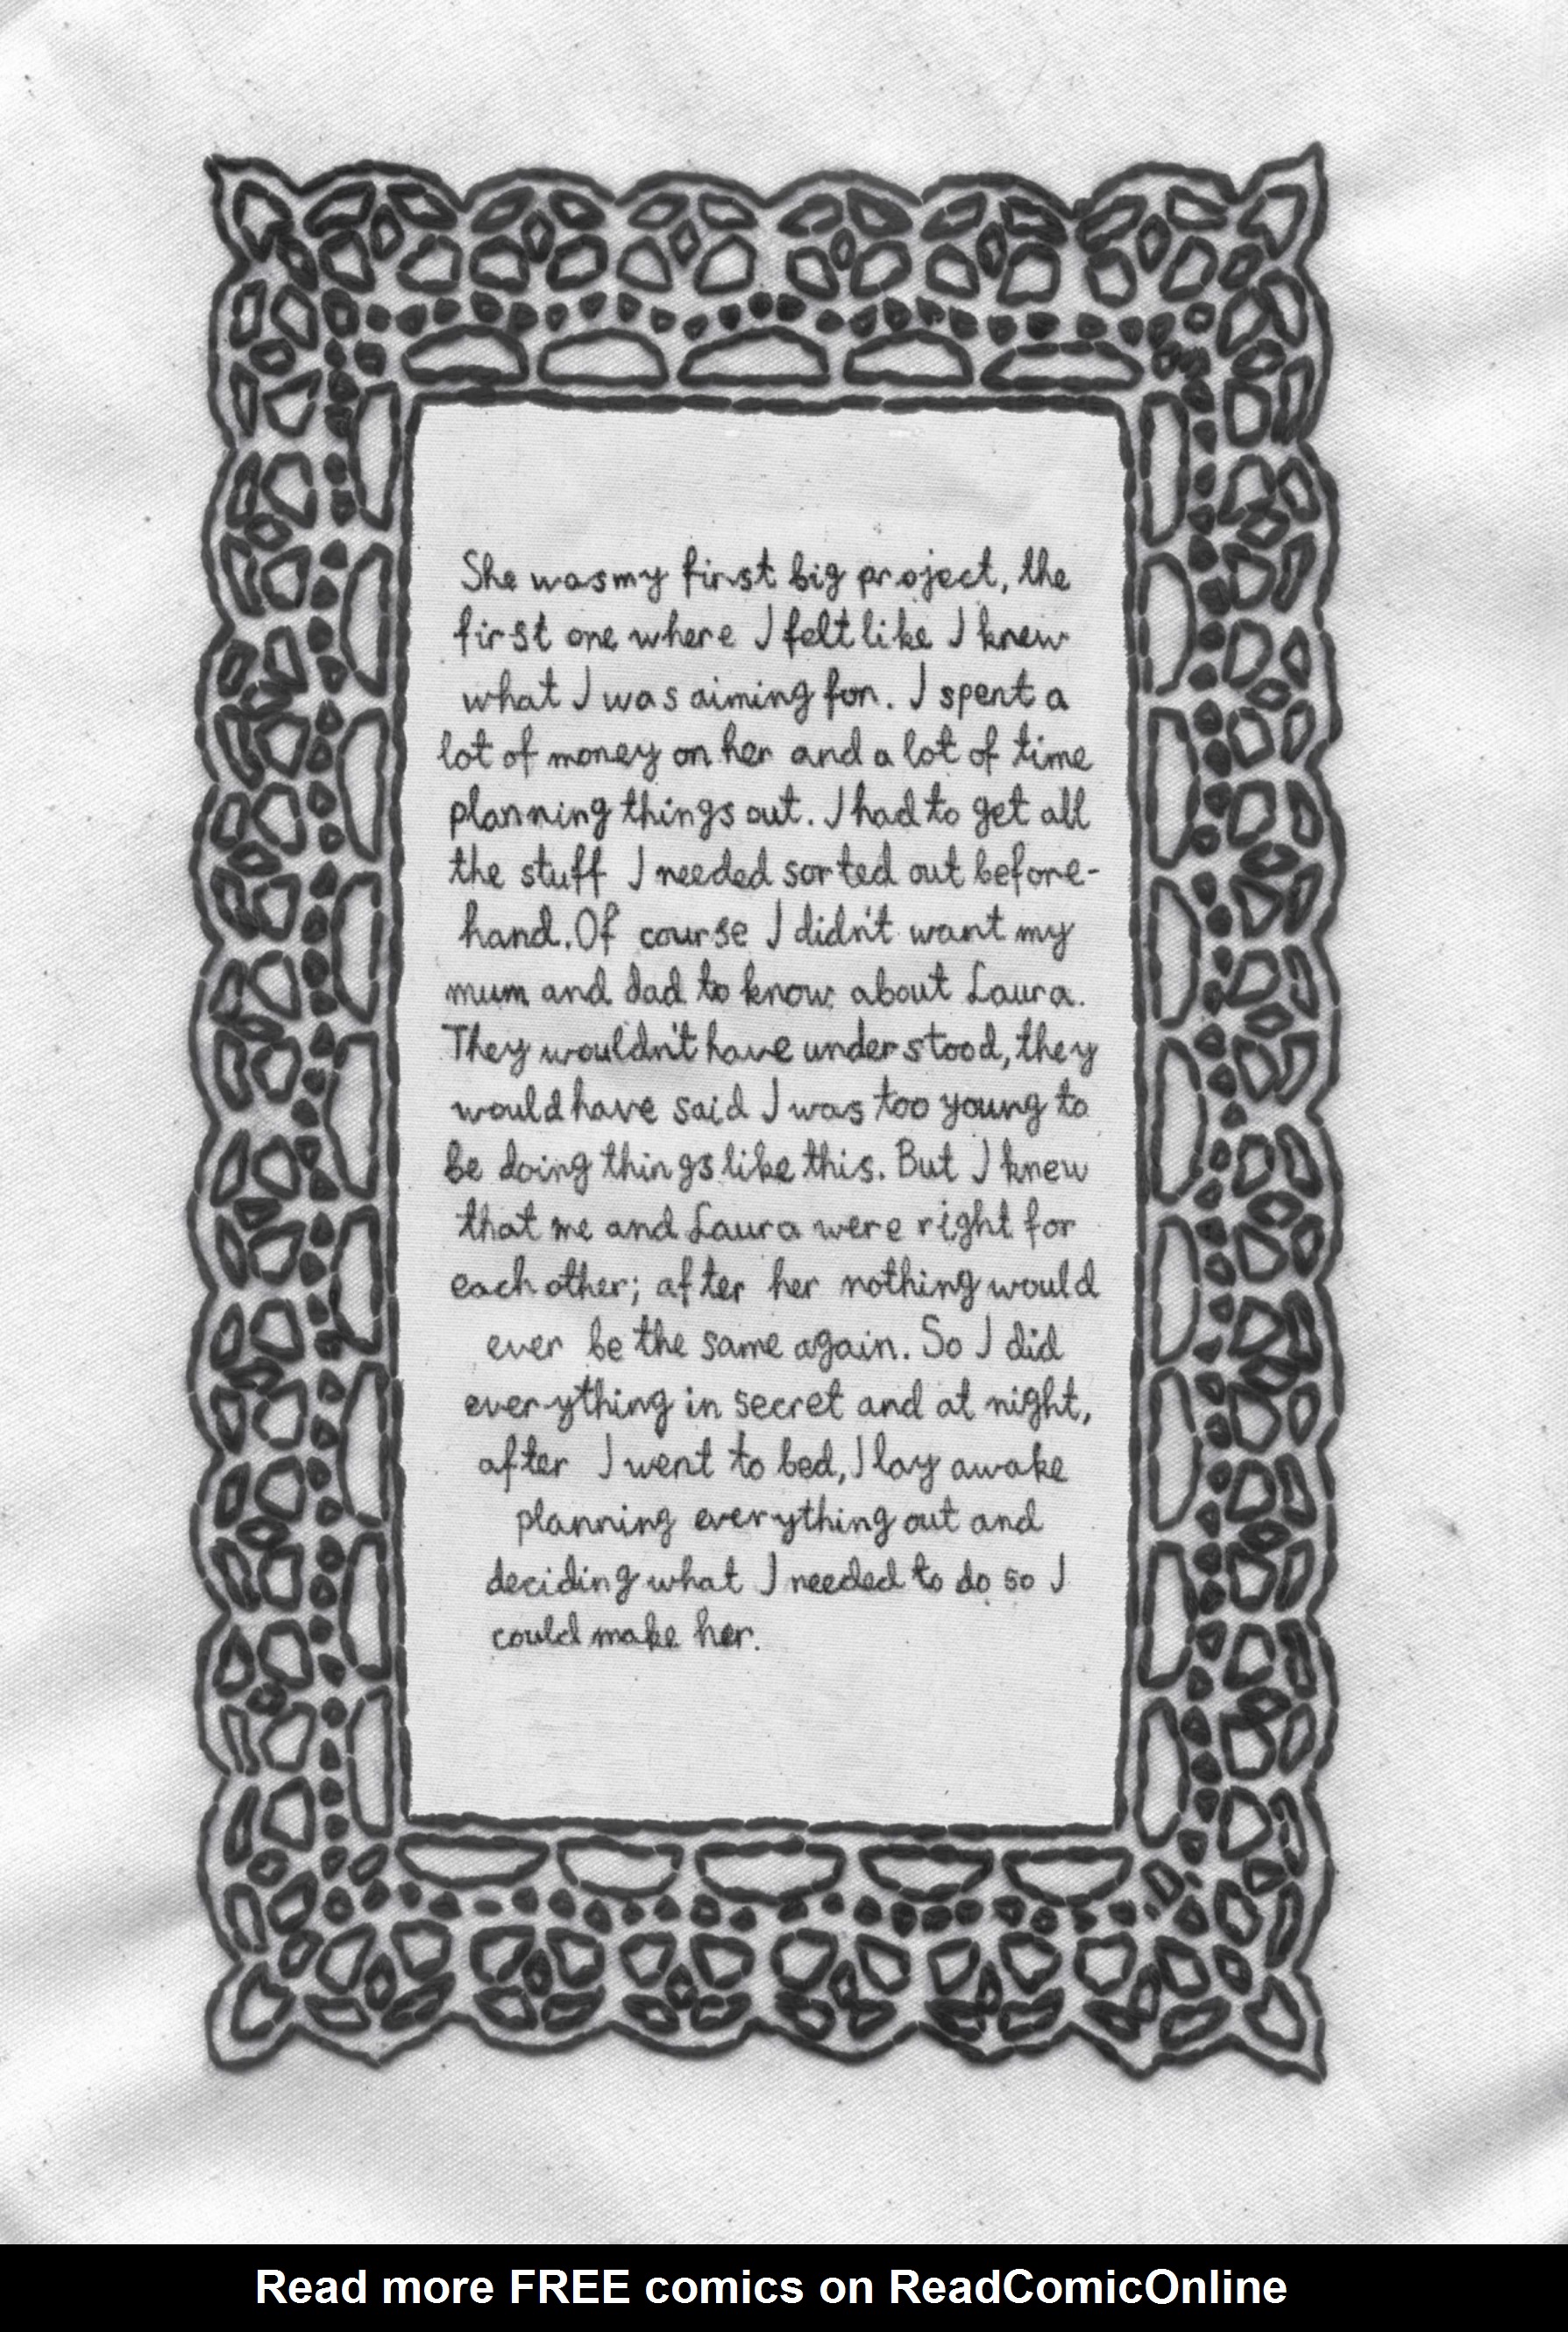 She was my first big project, the
first one where I felt like I knew
what I was aiming for. I spent a
lot of money on her and a lot of time
planning things out. I had to get all
the stuff I needed sorted out before-
hand. Of course I didn't want my
mum and dad to know about Laura.
They wouldn't have understood, they
would have said I was too young to
be doing things like this. But I knew
that me and Laura were right for
each other; after her nothing would
ever be the same again. So I did
everything in secret and at night,
after I went to bed, I lay awake
planning everything out and
deciding what I needed to do so I
could make her.
Read more FREE comics on ReadComicOnline